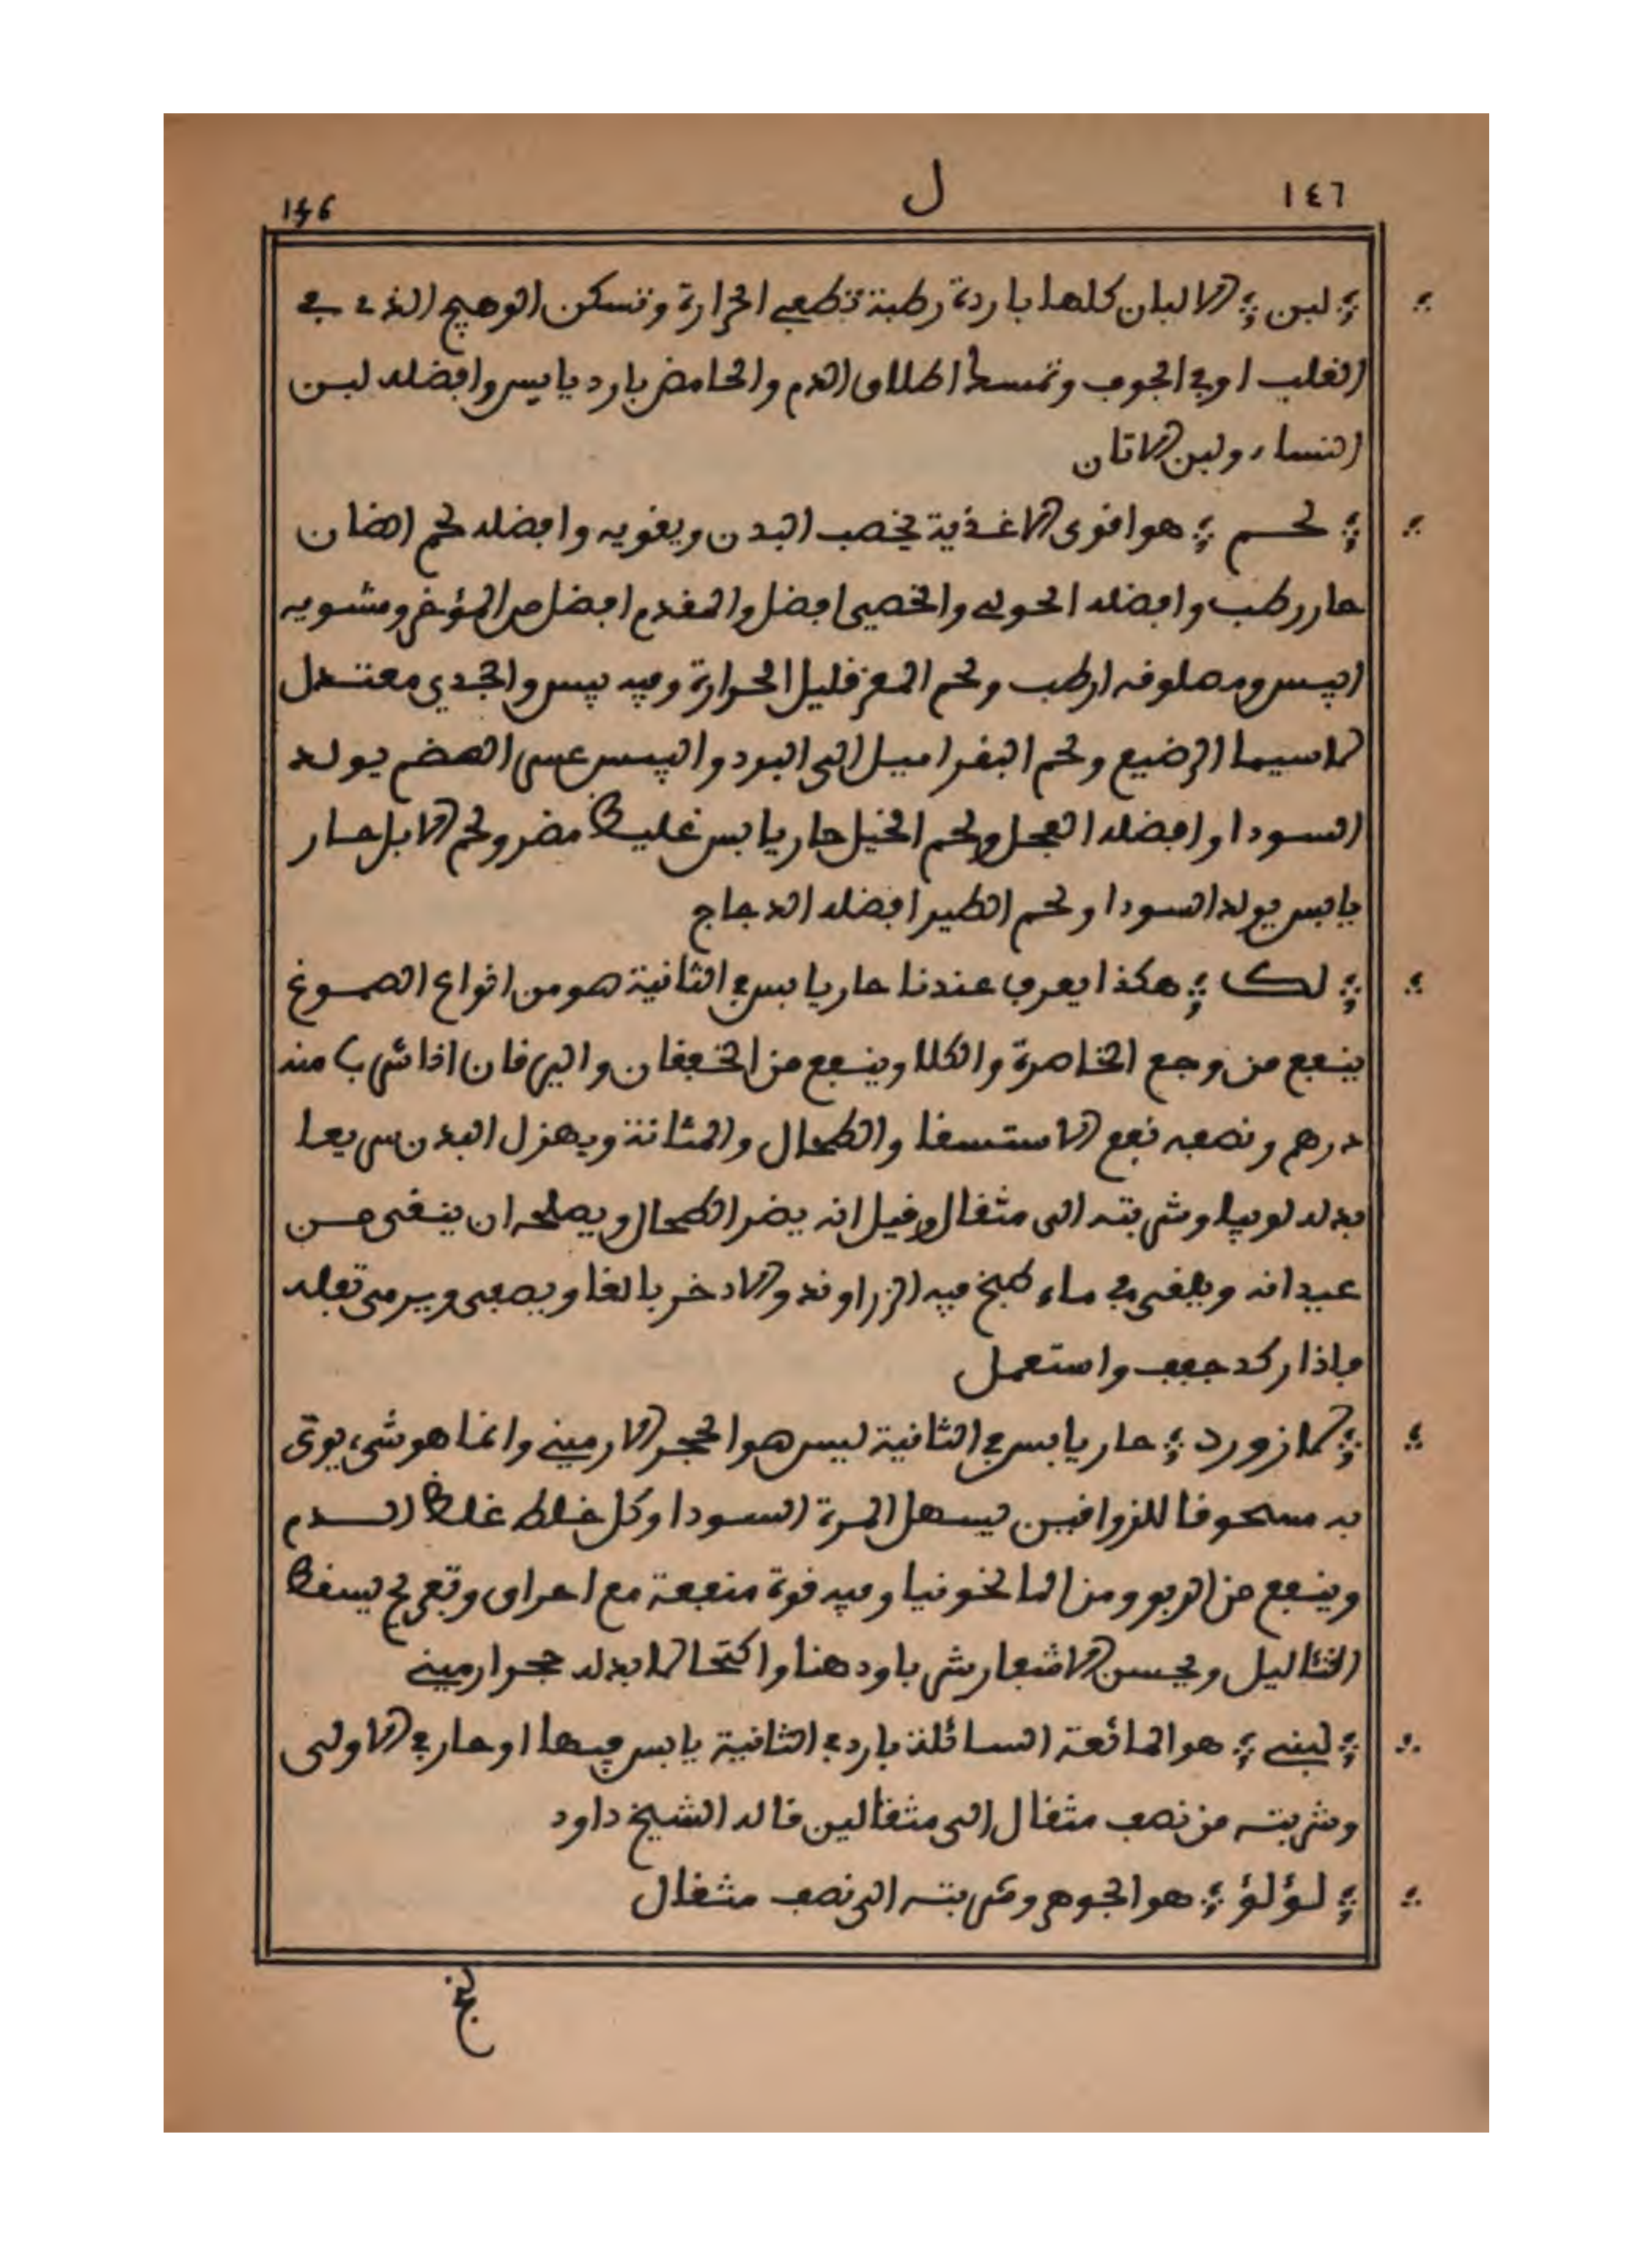 ١٤٦ ل 146
؞ لبن ؞ الالبان كلها باردة رطبة تطفي الحرارة وتسكن الوهيج الذي في
القلب او في الجوف وتمسك اطلاق الدم والحامض بارد يابس وافضله لبن
النساء ولبن الاتان
؞ لحم ؞ هو اقوى الاغذية يخصب البدن ويقويه وافضله لحم الضان
حار رطب وافضله الحولي والخصي افضل والمقدم افضل من المؤخر ومشويه
ايبس ومصلوقه ارطب ولحم المعز قليل الحرارة وفيه يبس والجدي معتدل
لاسيما الرضيع ولحم البقر اميل الى البرد واليبس عسر الهضم يولد
السودا وافضله العجل ولحم الخيل حار يابس غليظ مضر ولحم الابل حار
يابس يولد السودا ولحم الطير افضله الدجاج
؞ لك ؞ هكذا يعرف عندنا حار يابس في الثانية هو من انواع الصموغ
ينفع من وجع الخاصرة والكلا وينفع من الخفقان واليرقان اذا شرب منه
درهم ونصفه نفع الاستسقا والطحال والمثانة ويهزل البدن سريعا
بدله لوبيا وشربته الى مثقال وقيل انه يضر الطحال ويصلحه ان ينقى من
عيدانه ويلقى في ماء طبخ فيه الزراوند والادخر بالغا ويصفى ويرمى تفله
فاذا ركد جفف واستعمل
؞ لازورد ؞ حار يابس في الثانية ليس هو الحجر الارميني وانما هو شيء يوتى
به مسحوقا للزواقين يسهل المرة السودا وكل خلط غلظ الدم
وينفع من الربو ومن المالخونيا وفيه قوة منفعة مع احراق وتفريح يسقط
الثئاليل ويحسن الاشفار شربا ودهنا واكتحالا بدله حجر ارميني
؞ لبنى ؞ هو المائعة السائلة بارد في الثانية يابس فيها او حار في الاولى
وشربته من نصف مثقال الى مثقالين قاله الشيخ داود
؞ لؤلؤ ؞ هو الجوهر وشربته الى نصف مثقال